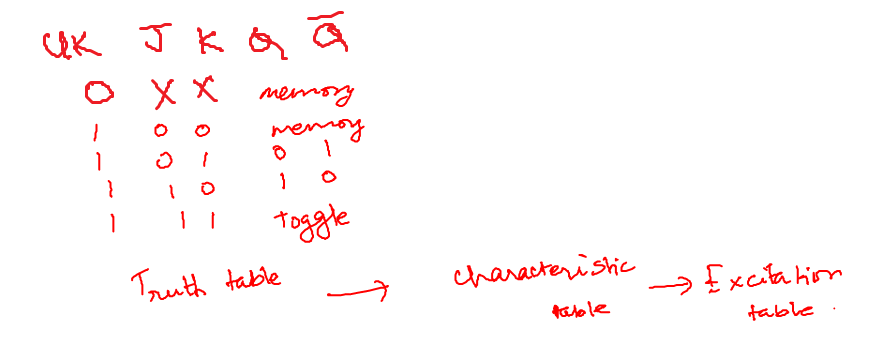 CLK J K Q Q̅
0 X X memory
1 0 0 memory
1 0 1 0 1
1 1 0 1 0
1 1 1 toggle
Truth table → characteristic table → Excitation table.